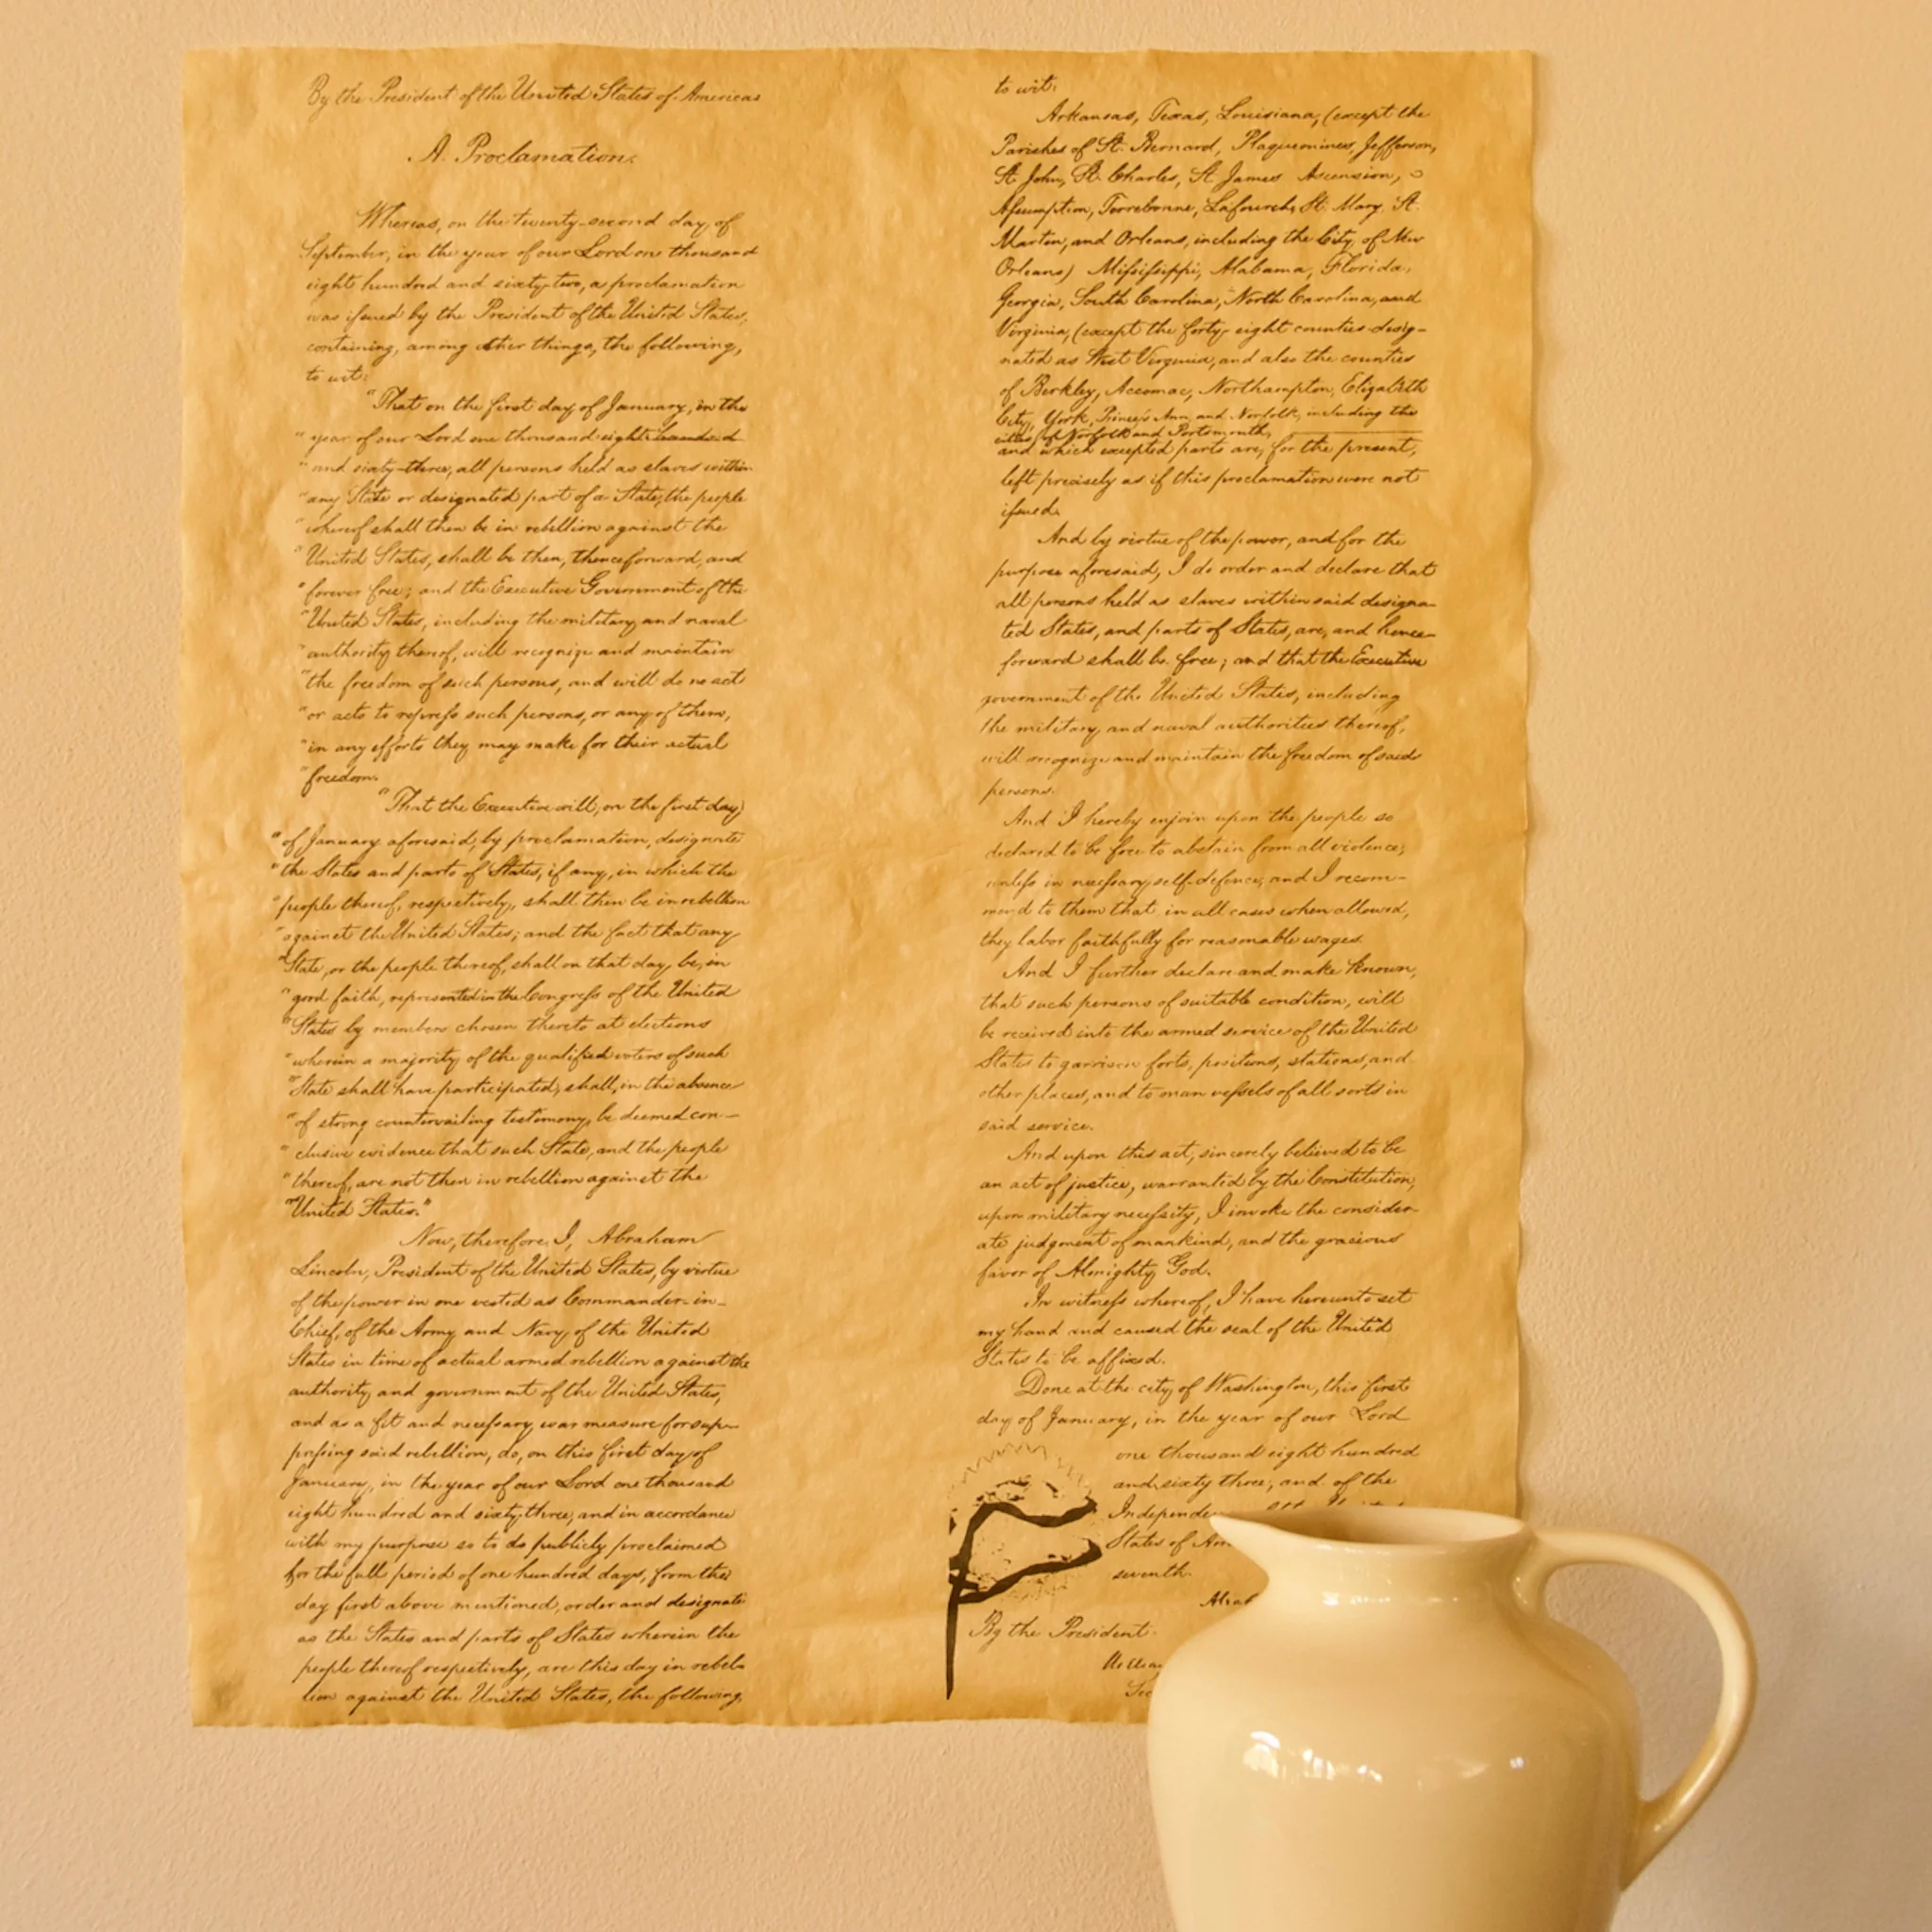 By the President of the United States of America
A Proclamation.
Whereas, on the twenty-second day of
September, in the year of our Lord one thousand
eight hundred and sixty-two, a proclamation
was issued by the President of the United States,
containing, among other things, the following,
to wit:
"That on the first day of January, in the
"year of our Lord one thousand eight hundred
"and sixty-three, all persons held as slaves within
"any State or designated part of a State, the people
"whereof shall then be in rebellion against the
"United States, shall be then, thenceforward, and
"forever free; and the Executive Government of the
"United States, including the military and naval
"authority thereof, will recognize and maintain
"the freedom of such persons, and will do no act
"or acts to repress such persons, or any of them,
"in any efforts they may make for their actual
"freedom.
"That the Executive will, on the first day
"of January aforesaid, by proclamation, designate
"the States and parts of States, if any, in which the
"people thereof, respectively, shall then be in rebellion
"against the United States; and the fact that any
"State, or the people thereof, shall on that day be, in
"good faith, represented in the Congress of the United
"States by members chosen thereto at elections
"wherein a majority of the qualified voters of such
"State shall have participated, shall, in the absence
"of strong countervailing testimony, be deemed con-
"clusive evidence that such State, and the people
"thereof, are not then in rebellion against the
"United States."
Now, therefore I, Abraham
Lincoln, President of the United States, by virtue
of the power in me vested as Commander-in-
Chief, of the Army and Navy, of the United
States in time of actual armed rebellion against the
authority and government of the United States,
and as a fit and necessary war measure for sup-
pressing said rebellion, do, on this first day of
January, in the year of our Lord one thousand
eight hundred and sixty three, and in accordance
with my purpose so to do publicly proclaimed
for the full period of one hundred days, from the
day first above mentioned, order and designate
as the States and parts of States wherein the
people thereof respectively, are this day in rebel-
lion against the United States, the following,
to wit:
Arkansas, Texas, Louisiana, (except the
Parishes of St. Bernard, Plaquemines, Jefferson,
St. John, St. Charles, St. James Ascension,
Assumption, Terrebonne, Lafourche, St. Mary, St.
Martin, and Orleans, including the City of New
Orleans) Mississippi, Alabama, Florida,
Georgia, South Carolina, North Carolina, and
Virginia, (except the forty-eight counties desig-
nated as West Virginia, and also the counties
of Berkley, Accomac, Northampton, Elizabeth
City, York, Princess Ann, and Norfolk, including the
cities of Norfolk and Portsmouth,
and which excepted parts are, for the present,
left precisely as if this proclamation were not
issued.
And by virtue of the power, and for the
purpose aforesaid, I do order and declare that
all persons held as slaves within said designa-
ted States, and parts of States, are, and hence-
forward shall be free; and that the Executive
government of the United States, including
the military and naval authorities thereof,
will recognize and maintain the freedom of said
persons.
And I hereby enjoin upon the people so
declared to be free to abstain from all violence,
unless in necessary self-defence; and I recom-
mend to them that in all cases when allowed,
they labor faithfully for reasonable wages.
And I further declare and make known,
that such persons of suitable condition, will
be received into the armed service of the United
States to garrison forts, positions, stations, and
other places, and to man vessels of all sorts in
said service.
And upon this act, sincerely believed to be
an act of justice, warranted by the Constitution,
upon military necessity, I invoke the consider-
ate judgment of mankind, and the gracious
favor of Almighty God.
In witness whereof, I have hereunto set
my hand and caused the seal of the United
States to be affixed.
Done at the city of Washington, this first
day of January, in the year of our Lord
one thousand eight hundred
and sixty three, and of the
States of
seventh.
By the President.